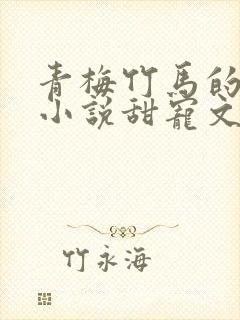 青梅竹馬的
小說甜寵文
竹永海